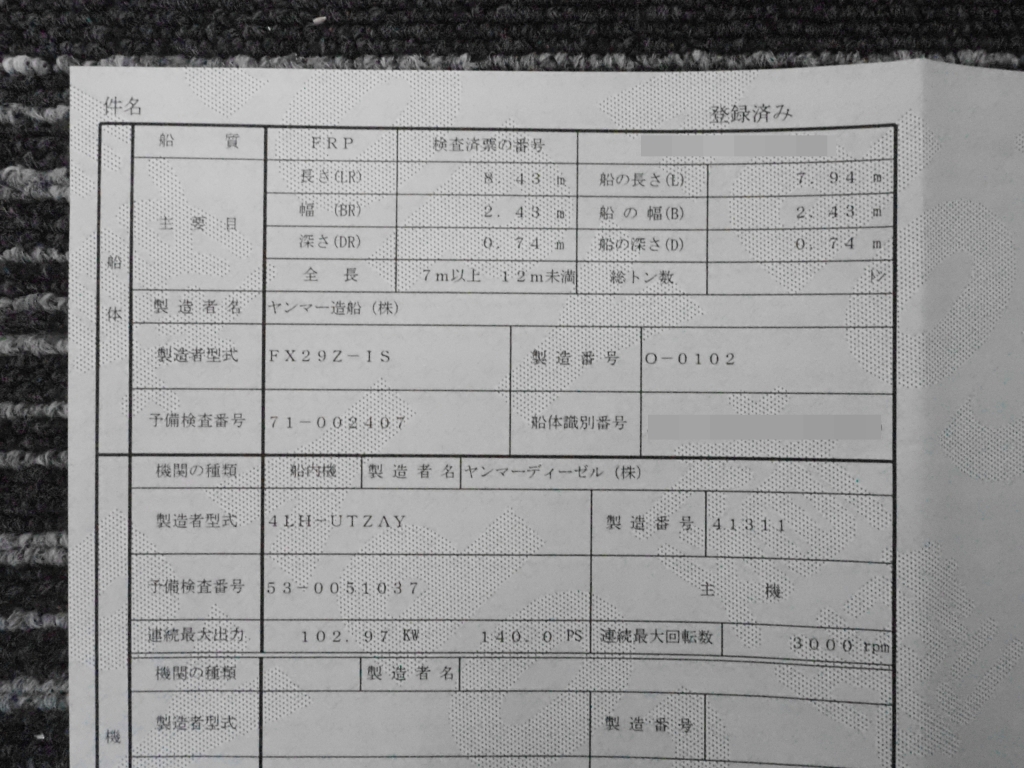 件名 登録済み
船質 ＦＲＰ 検査済票の番号
船体 主要目 長さ(LR) ８．４３ m 船の長さ(L) ７．９４ m
幅 (BR) ２．４３ m 船の幅(B) ２．４３ m
深さ(DR) ０．７４ m 船の深さ(D) ０．７４ m
全長 ７ｍ以上 １２ｍ未満 総トン数 トン
製造者名 ヤンマー造船（株）
製造者型式 ＦＸ２９Ｚ－ＩＳ 製造番号 Ｏ－０１０２
予備検査番号 ７１－００２４０７ 船体識別番号
機関の種類 船内機 製造者名 ヤンマーディーゼル（株）
製造者型式 ４ＬＨ－ＵＴＺＡＹ 製造番号 ４１３１１
予備検査番号 ５３－００５１０３７ 主機
連続最大出力 １０２．９７ KW １４０．０ PS 連続最大回転数 ３０００ rpm
機関の種類 製造者名
機 製造者型式 製造番号